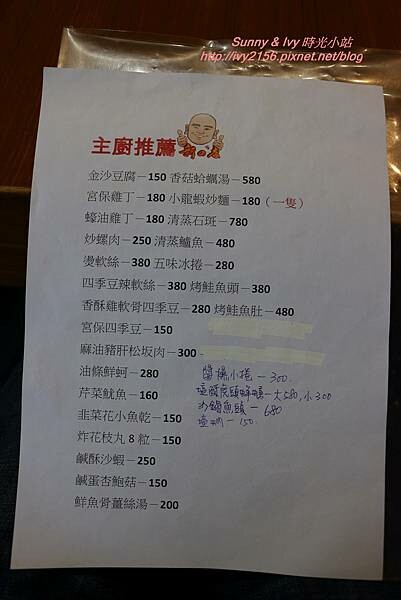 Sunny & Ivy 時光小站
http://ivy2156.pixnet.net/blog
主廚推薦
金沙豆腐－150 香菇蛤蠣湯－580
宮保雞丁－180 小龍蝦炒麵－180（一隻）
蠔油雞丁－180 清蒸石斑－780
炒螺肉－250 清蒸鱸魚－480
燙軟絲－380 五味冰捲－280
四季豆辣軟絲－380 烤鮭魚頭－380
香酥雞軟骨四季豆－280 烤鮭魚肚－480
宮保四季豆－150
麻油豬肝松坂肉－300
油條鮮蚵－280
芹菜魷魚－160
韭菜花小魚乾－150
炸花枝丸 8 粒－150
鹹酥沙蝦－250
鹹蛋杏鮑菇－150
鮮魚骨薑絲湯－200
小捲－300
大580,小300
魚頭－680
－150